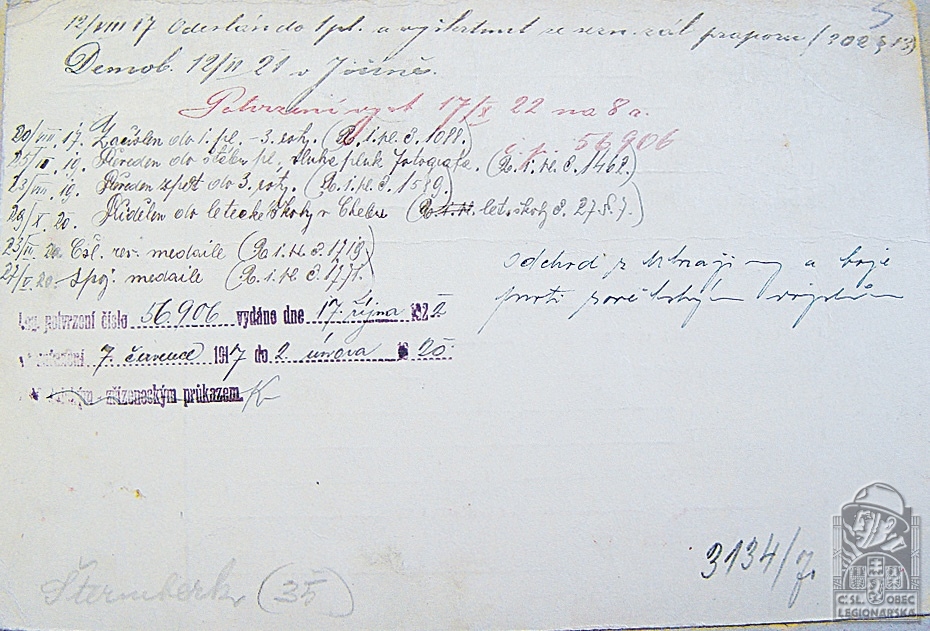 12/VIII 17 Odeslán do 1 pl. a vyškrtnut ze sezn. zál. praporu (302 § 13)
Demob. 12/II 21 v Jičíně.
Potvrzení vyd. 17/X 22 na 8 a.
č. p. 56906
20/VIII. 17. Začislen do 1. pl. - 3. roty. (R. 1. pl. č. 1088.)
25/ 19. Převeden do štábu pl., sluhá pluk. fotografa. (R. 1. pl. č. 1462.)
23/VIII. 19. Převeden zpět do 3. roty. (R. 1. pl. č. 1539.)
29/X. 20. Přidělen do letecké školy v Chebu (let. školy č. 27. § 7.)
23/ 20. Čsl. rev. medaile (R. 1. pl. č. 1719.)
22/V. 20. Spoj. medaile (R. 1. pl. č. 1771.)
odchod z Ukrajiny a boje
proti sovětským vojskům
Leg. potvrzení číslo 56.906 vydáno dne 17. října 1922
7. července 1917 do 2. února 1920.
zřízeneckým průkazem. K
3134/7.
Šternberk (35)
ČSL. OBEC
LEGIONÁŘSKÁ